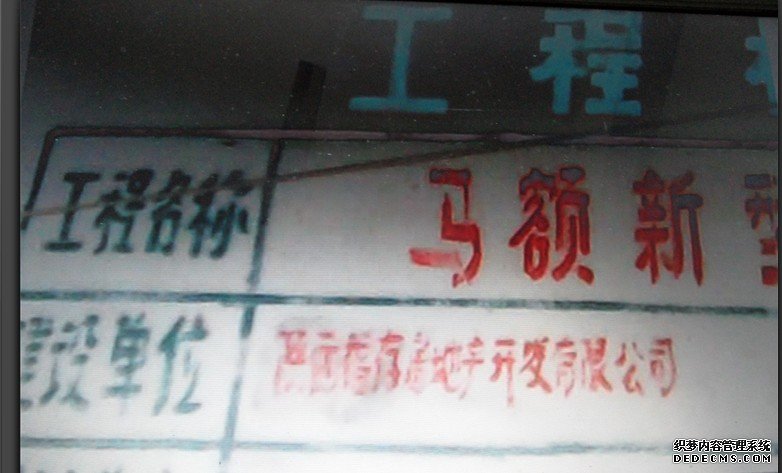 工程
工程名称 马额新
建设单位 陕西 房地产开发有限公司
织梦内容管理系统
DEDECMS.COM